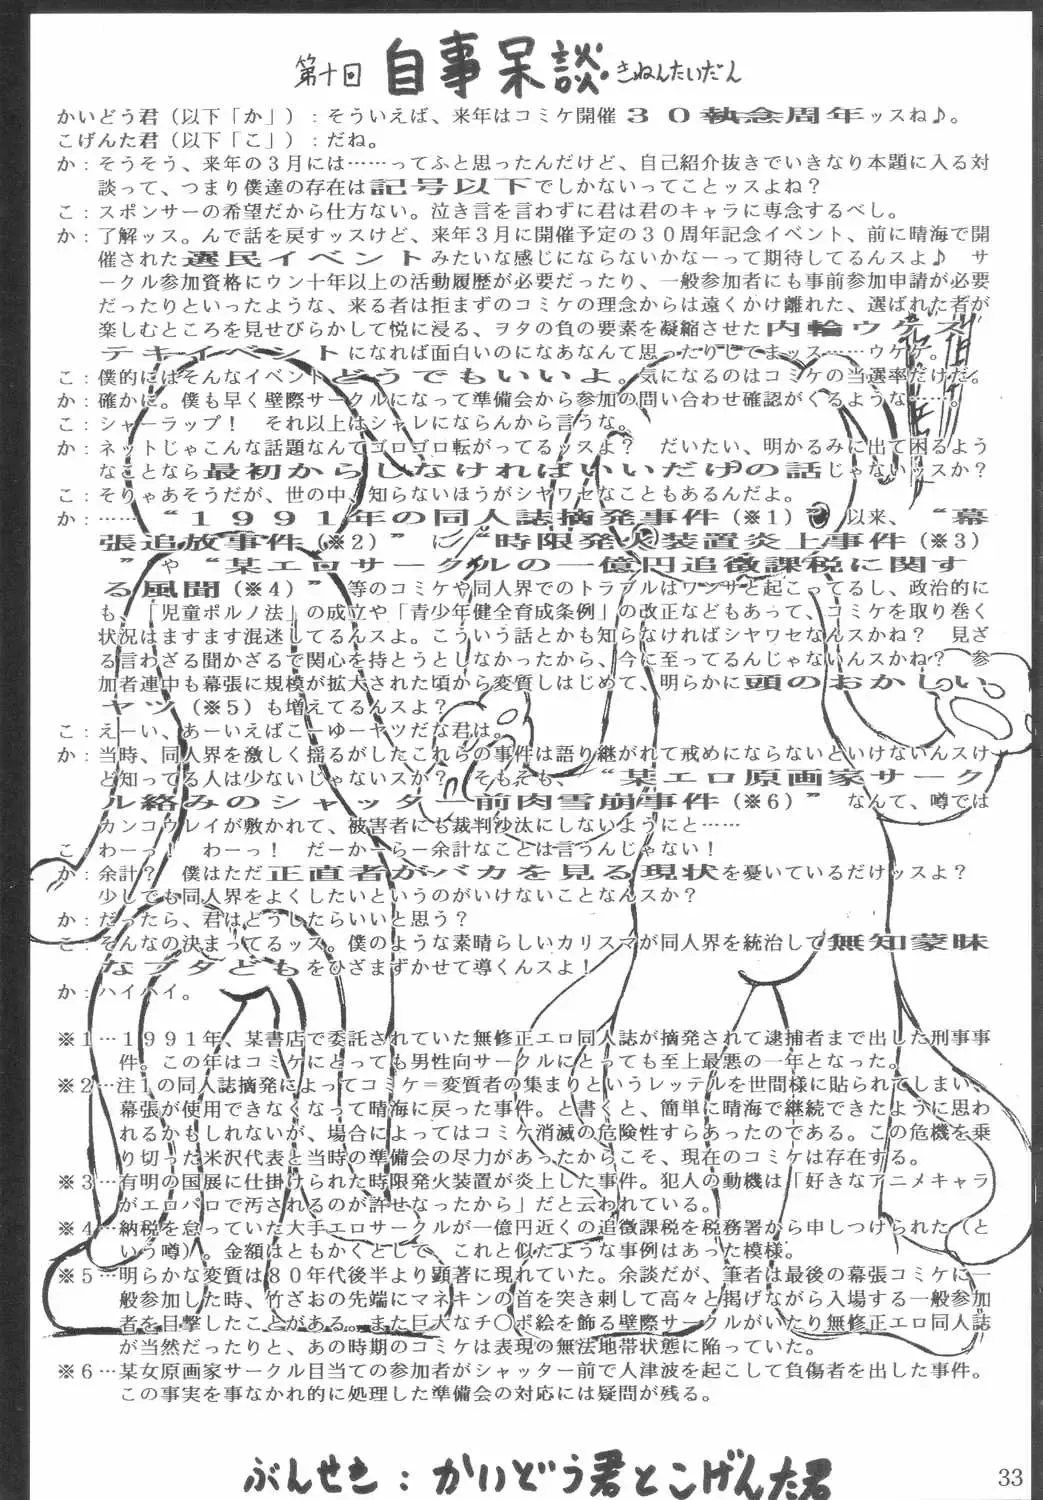 第十回 自事呆談 きねんたいだん
かいどう君（以下「か」）：そういえば、来年はコミケ開催３０執念周年ッスね♪。
こげんた君（以下「こ」）：だね。
か：そうそう、来年の３月には……ってふと思ったんだけど、自己紹介抜きでいきなり本題に入る対
談って、つまり僕達の存在は記号以下でしかないってことッスよね？
こ：スポンサーの希望だから仕方ない。泣き言を言わずに君は君のキャラに専念するべし。
か：了解ッス。んで話を戻すッスけど、来年３月に開催予定の３０周年記念イベント、前に晴海で開
催された選民イベントみたいな感じにならないかなーって期待してるんスよ♪　サ
ークル参加資格にウン十年以上の活動履歴が必要だったり、一般参加者にも事前参加申請が必要
だったりといったような、来る者は拒まずのコミケの理念からは遠くかけ離れた、選ばれた者が
楽しむところを見せびらかして悦に浸る、ヲタの負の要素を凝縮させた内輪ウケス
テキイベントになれば面白いのになあなんて思ったりしてまッス……ウケケ。
こ：僕的にはそんなイベントどうでもいいよ。気になるのはコミケの当選率だけだ。
か：確かに。僕も早く壁際サークルになって準備会から参加の問い合わせ確認がくるような……。
こ：シャーラップ！　それ以上はシャレにならんから言うな。
か：ネットじゃこんな話題なんてゴロゴロ転がってるッスよ？　だいたい、明かるみに出て困るよう
なことなら最初からしなければいいだけの話じゃないッスか？
こ：そりゃあそうだが、世の中、知らないほうがシヤワセなこともあるんだよ。
か：……“１９９１年の同人誌摘発事件（※１）”以来、“幕
張追放事件（※２）”に“時限発火装置炎上事件（※３）
”や“某エロサークルの一億円追徴課税に関す
る風聞（※４）”　等のコミケや同人界でのトラブルはワンサと起こってるし、政治的に
も、「児童ポルノ法」の成立や「青少年健全育成条例」の改正などもあって、コミケを取り巻く
状況はますます混迷してるんスよ。こういう話とかも知らなければシヤワセなんスかね？　見ざ
る言わざる聞かざるで関心を持とうとしなかったから、今に至ってるんじゃないんスかね？　参
加者連中も幕張に規模が拡大された頃から変質しはじめて、明らかに頭のおかしい
ヤツ（※５）も増えてるんスよ？
こ：えーい、あーいえばこーゆーヤツだな君は。
か：当時、同人界を激しく揺るがしたこれらの事件は語り継がれて戒めにならないといけないんスけ
ど知ってる人は少ないじゃないスか？　そもそも、“某エロ原画家サーク
ル絡みのシャッター前肉雪崩事件（※６）”　なんて、噂では
カンコウレイが敷かれて、被害者にも裁判沙汰にしないようにと……
こ：わーっ！　わーっ！　だーかーらー余計なことは言うんじゃない！
か：余計？　僕はただ正直者がバカを見る現状を憂いているだけッスよ？
少しでも同人界をよくしたいというのがいけないことなんスか？
か：だったら、君はどうしたらいいと思う？
こ：そんなの決まってるッス。僕のような素晴らしいカリスマが同人界を統治して無知蒙昧
なブタどもをひざまずかせて導くんスよ！
か：ハイハイ。
※１…１９９１年、某書店で委託されていた無修正エロ同人誌が摘発されて逮捕者まで出した刑事事
件。この年はコミケにとっても男性向サークルにとっても至上最悪の一年となった。
※２…注１の同人誌摘発によってコミケ＝変質者の集まりというレッテルを世間様に貼られてしまい、
幕張が使用できなくなって晴海に戻った事件。と書くと、簡単に晴海で継続できたように思わ
れるかもしれないが、場合によってはコミケ消滅の危険性すらあったのである。この危機を乗
り切った米沢代表と当時の準備会の尽力があったからこそ、現在のコミケは存在する。
※３…有明の国展に仕掛けられた時限発火装置が炎上した事件。犯人の動機は「好きなアニメキャラ
がエロパロで汚されるのが許せなったから」だと云われている。
※４…納税を怠っていた大手エロサークルが一億円近くの追徴課税を税務署から申しつけられた（と
いう噂）。金額はともかくとして、これと似たような事例はあった模様。
※５…明らかな変質は８０年代後半より顕著に現れていた。余談だが、筆者は最後の幕張コミケに一
般参加した時、竹ざおの先端にマネキンの首を突き刺して高々と掲げながら入場する一般参加
者を目撃したことがある。また巨大なチ〇ポ絵を飾る壁際サークルがいたり無修正エロ同人誌
が当然だったりと、あの時期のコミケは表現の無法地帯状態に陥っていた。
※６…某女原画家サークル目当ての参加者がシャッター前で人津波を起こして負傷者を出した事件。
この事実を事なかれ的に処理した準備会の対応には疑問が残る。
ぶんせき：かいどう君とこげんた君
33